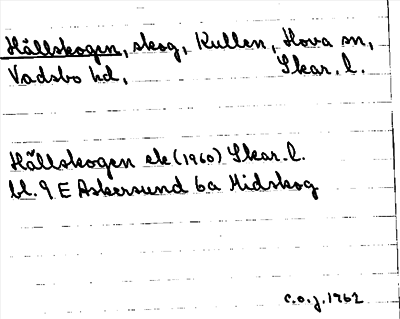 Hällskogen, skog, Kullen, Hova sn,
Vadsbo hd, Skar. l.
Hällskogen ek (1960) Skar. l.
bl. 9 E Askersund 6a Midskog
c.o.j. 1962